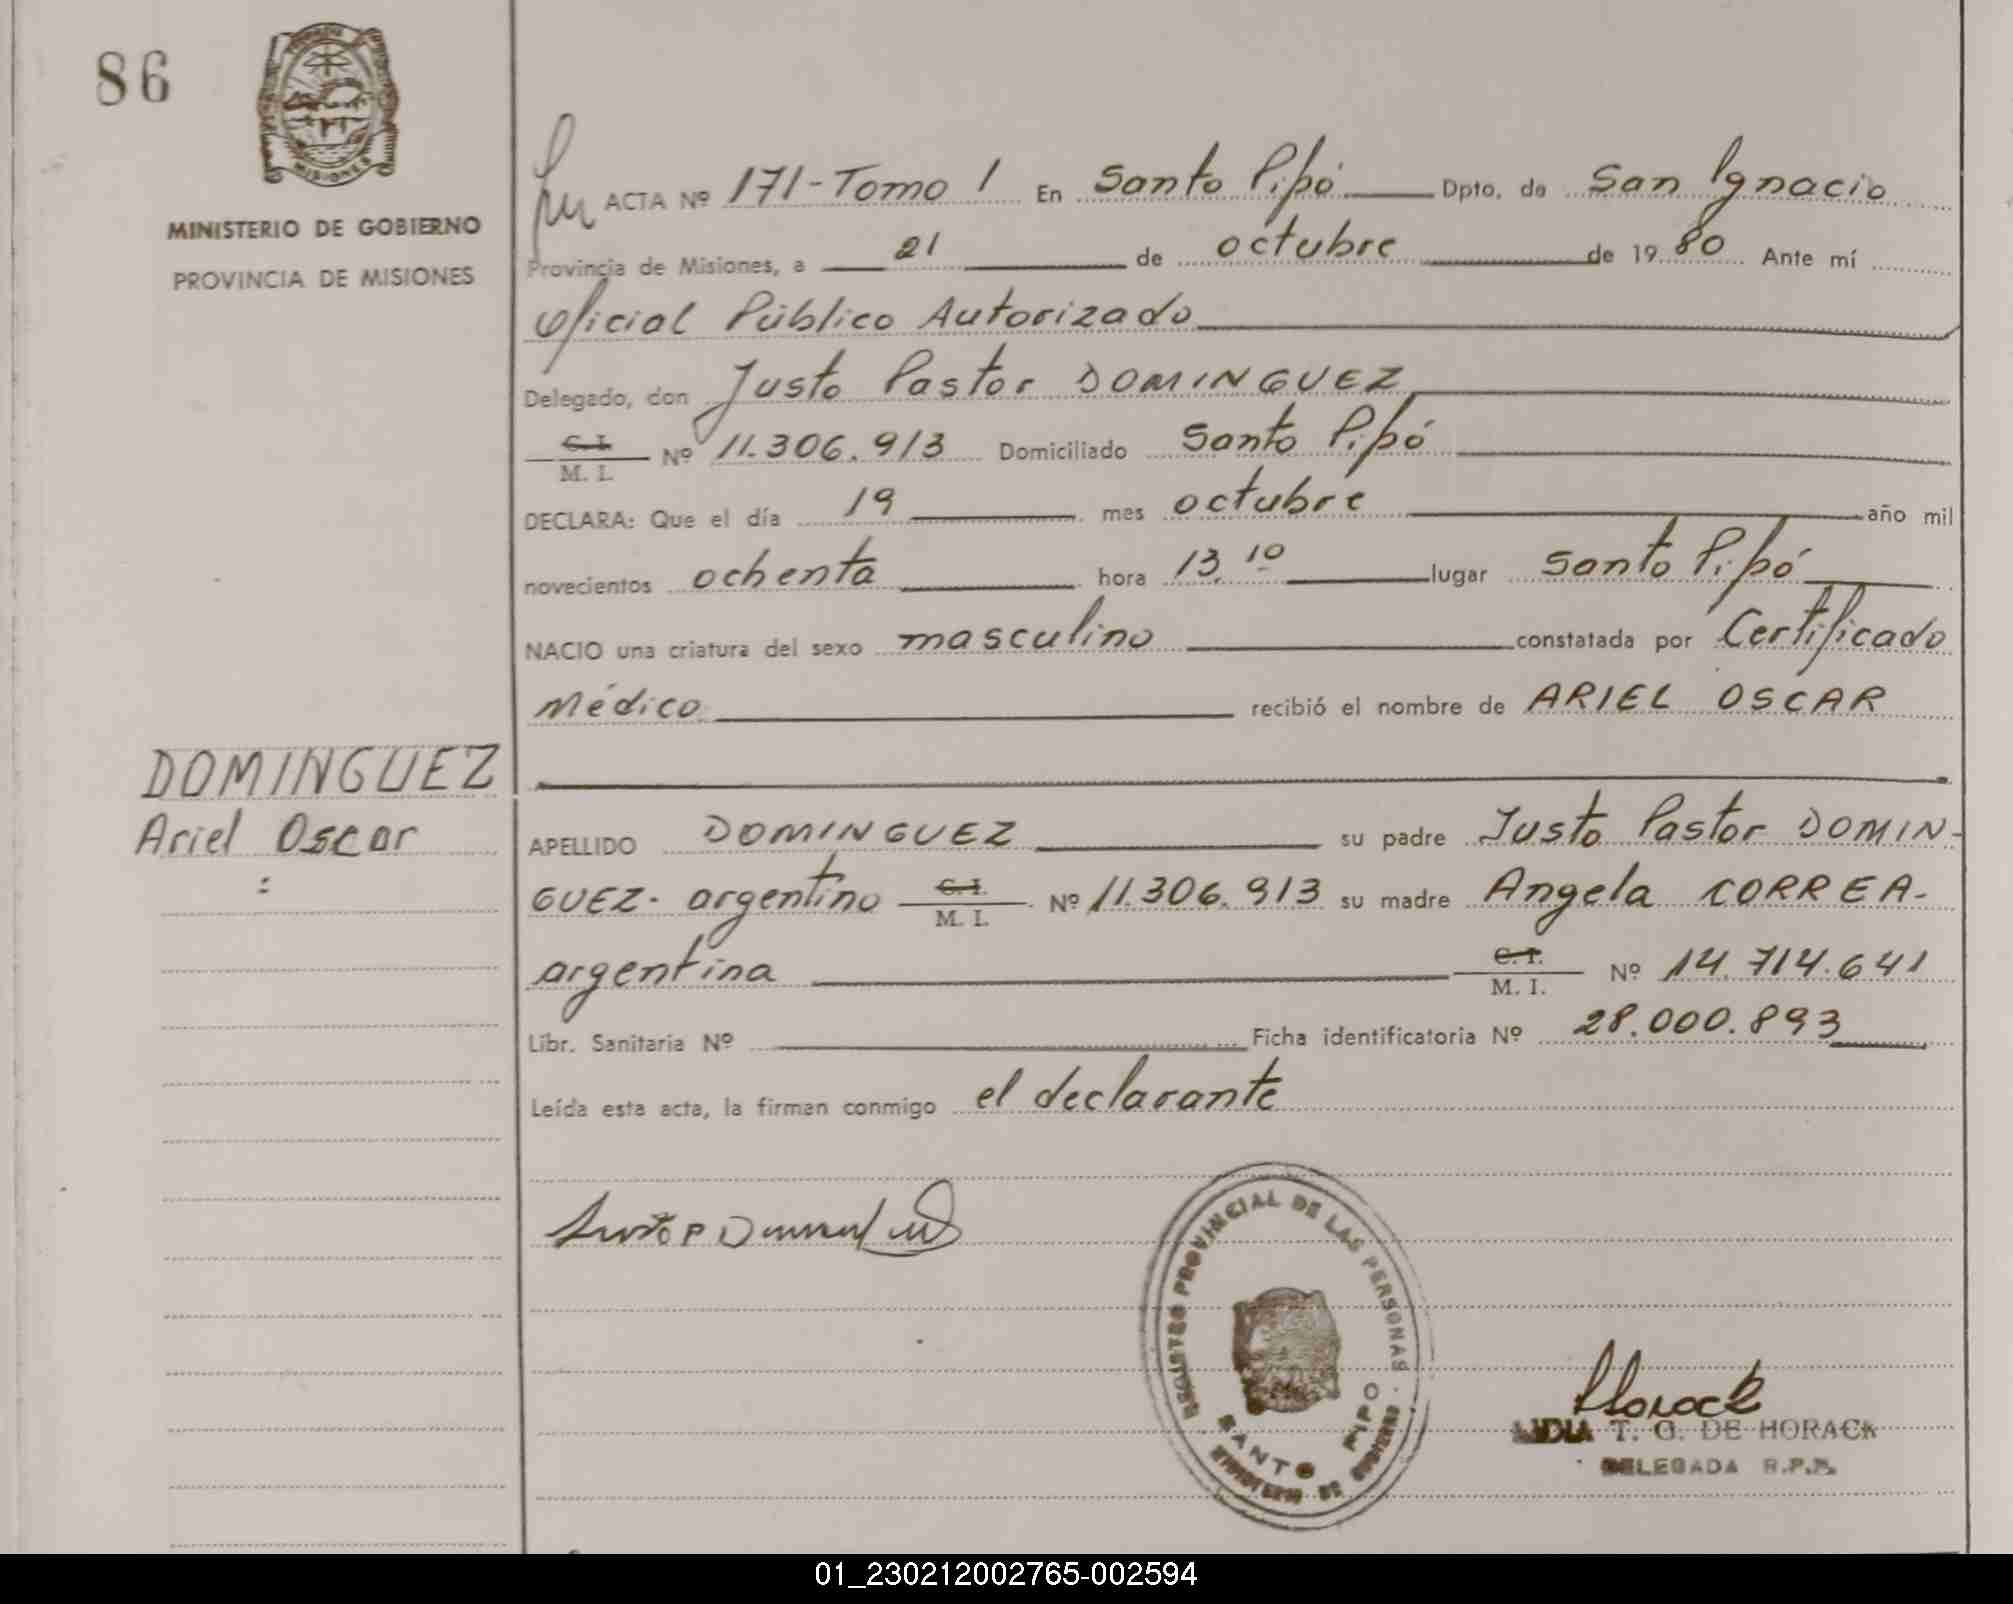 86
MISIONES
MINISTERIO DE GOBIERNO
PROVINCIA DE MISIONES
ACTA Nº 171-Tomo 1 En Santo Pipó Dpto. de San Ignacio
Provincia de Misiones, a 21 de octubre de 1980 Ante mí
Oficial Público Autorizado
Delegado, don Justo Pastor DOMINGUEZ
C. I. / M. I. Nº 11.306.913 Domiciliado Santo Pipó
DECLARA: Que el día 19 mes octubre año mil
novecientos ochenta hora 13,10 lugar Santo Pipó
NACIO una criatura del sexo masculino constatada por Certificado
Médico recibió el nombre de ARIEL OSCAR
DOMINGUEZ
Ariel Oscar
APELLIDO DOMINGUEZ su padre Justo Pastor DOMIN-
GUEZ- argentino C. I. / M. I. Nº 11.306.913 su madre Angela CORREA-
argentina C. I. / M. I. Nº 14.714.641
Libr. Sanitaria Nº Ficha identificatoria Nº 28.000.893
Leída esta acta, la firman conmigo el declarante
Justo P
REGISTRO PROVINCIAL DE LAS PERSONAS
SANTO PIPO
MINISTERIO DE GOBIERNO
Horack
LIDIA T. G. DE HORACK
DELEGADA R.P.P.
01_230212002765-002594